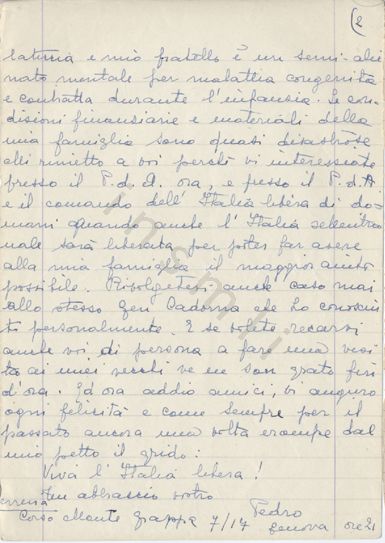 2
laturia e mio fratello è un semi-alie
nato mentale per malattia congenita
e contratta durante l'infansia. Le con
disioni finansiarie e materiali della
mia famiglia sono quasi disastrose
mi rimetto a voi perchè vi interessiate
presso il P.d.A. ora, e presso il P.d.A
e il comando dell'Italia libera di do-
mani quando anche l'Italia settentrio
nale sarà liberata per poter far avere
alla mia famiglia il maggior aiuto
possibile. Rivolgetevi anche caso mai
allo stesso Gen Cadorna che ho conosciu
to personalmente. E se volete recarvi
anche voi di persona a fare una visi
ta ai miei vecchi ve ne son grato fin
d'ora. Ed ora addio amici, vi auguro
ogni felicità e come sempre per il
passato ancora una volta erompe dal
mio petto il grido:
Viva l'Italia libera!
Un abbraccio vostro
Pedro
Corso Monte Grappa 7/17 Genova ore 21
insmli